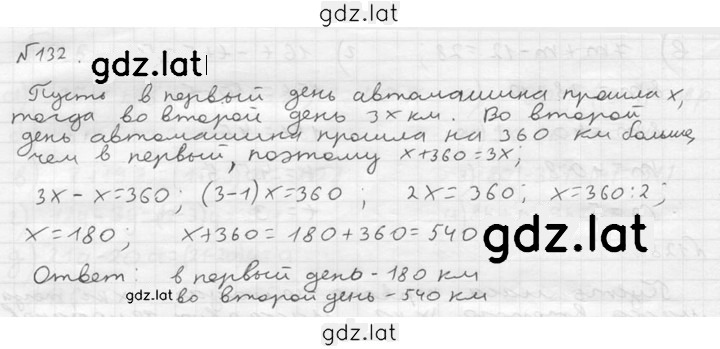 gdz.lat
№132.
gdz.lat
Пусть в первый день автомашина прошла x,
тогда во второй день 3x км. Во второй
день автомашина прошла на 360 км больше,
чем в первый, поэтому x+360=3x;
3x-x=360; (3-1)x=360; 2x=360; x=360:2;
x=180; x+360=180+360=540
gdz.lat
Ответ: в первый день-180 км
во второй день-540 км
gdz.lat
gdz.lat